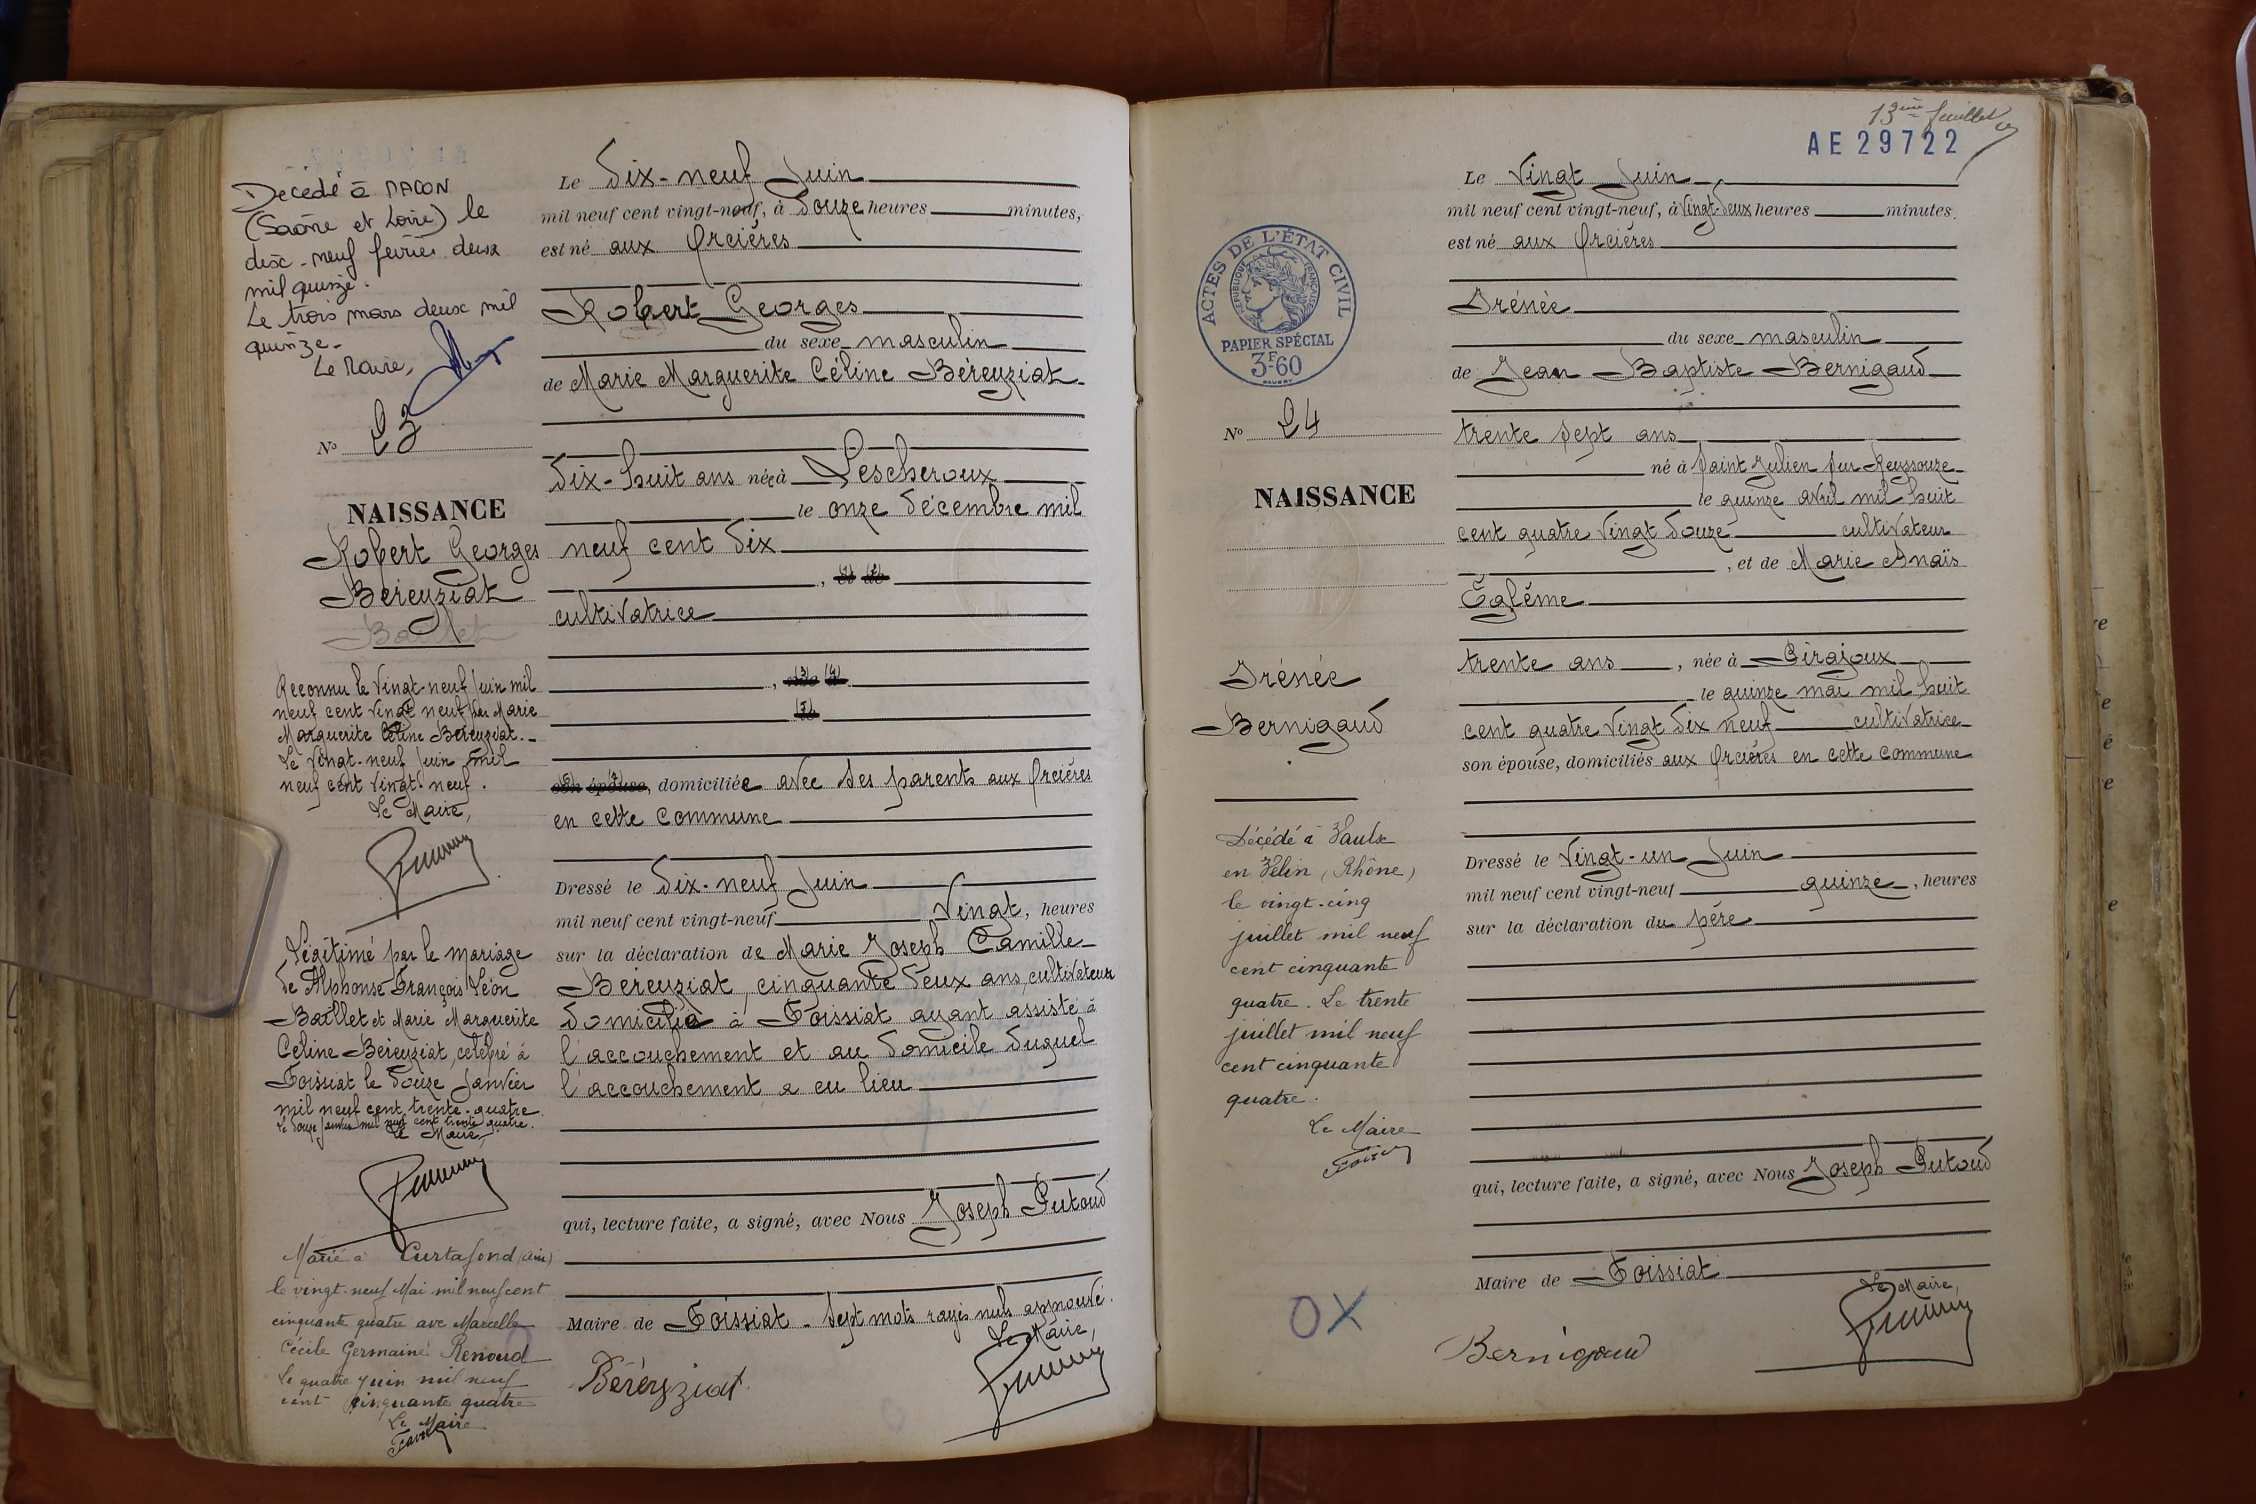 Décédé à MACON
(Saône et Loire) le
dix-neuf février deux
mil quinze.
Le trois mars deux mil
quinze.
Le Maire,
No 23
NAISSANCE
Robert Georges
Béreyziat
Baillet
Reconnu le vingt-neuf Juin mil
neuf cent vingt neuf par Marie
Marguerite Céline Béreyziat.
Le vingt-neuf Juin mil
neuf cent vingt-neuf.
Le Maire,
Légitimé par le mariage
de Alphonse François Léon
Baillet et Marie Marguerite
Céline Béreyziat, célébré à
Foissiat le douze Janvier
mil neuf cent trente-quatre.
Le douze Janvier mil neuf cent trente quatre.
Le Maire,
Marié à Curtafond (Ain)
le vingt-neuf Mai mil neuf cent
cinquante quatre avec Marcelle
Cécile Germaine Renoud
Le quatre juin mil neuf
cent cinquante quatre
Le Maire
Le dix-neuf Juin
mil neuf cent vingt-neuf, à douze heures minutes,
est né aux Orcières
Robert Georges
du sexe masculin
de Marie Marguerite Céline Béreyziat
dix-huit ans née à Lescheroux
le onze décembre mil
neuf cent dix
, et de
cultivatrice
, née à
le
son épouse, domiciliée avec ses parents aux Orcières
en cette commune
Dressé le dix-neuf Juin
mil neuf cent vingt-neuf vingt, heures
sur la déclaration de Marie Joseph Camille
Béreyziat, cinquante deux ans, cultivateur
domicilié à Foissiat ayant assisté à
l'accouchement et au domicile duquel
l'accouchement a eu lieu
qui, lecture faite, a signé, avec Nous Joseph Putoud
Maire de Foissiat - Sept mots rayés nuls approuvé.
Le Maire,
Béréyziat
13ème feuillet
AE 29722
ACTES DE L'ÉTAT CIVIL
RÉPUBLIQUE FRANÇAISE
PAPIER SPÉCIAL
3F60
No 24
NAISSANCE
Irénée
Bernigaud
Décédé à Vaulx
en Velin (Rhône)
le vingt-cinq
juillet mil neuf
cent cinquante
quatre. Le trente
juillet mil neuf
cent cinquante
quatre.
Le Maire
OX
Le vingt Juin
mil neuf cent vingt-neuf, à vingt-deux heures minutes.
est né aux Orcières
Irénée
du sexe masculin
de Jean Baptiste Bernigaud
trente sept ans
né à Saint Julien sur Reyssouze
le quinze avril mil huit
cent quatre vingt douze cultivateur
, et de Marie Anaïs
Égléme
trente ans, née à Cirajoux
le quinze mai mil huit
cent quatre vingt dix neuf cultivatrice
son épouse, domiciliés aux Orcières en cette commune
Dressé le vingt-un Juin
mil neuf cent vingt-neuf quinze, heures
sur la déclaration du père
qui, lecture faite, a signé, avec Nous Joseph Putoud
Maire de Foissiat
Le Maire,
Bernigaud